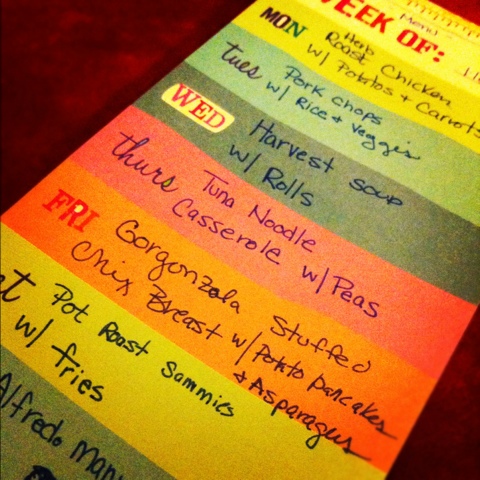 WEEK OF:
Menu
MON
Herb
Roast Chicken
w/ Potatos + Carrots
tues
Pork chops
w/ Rice + Veggies
WED
Harvest soup
w/ Rolls
thurs
Tuna Noodle
Casserole w/ Peas
FRI
Gorgonzola Stuffed
Chix Breast w/ Potato pancakes
+ Asparagus
Pot Roast Sammies
w/ fries
Alfredo